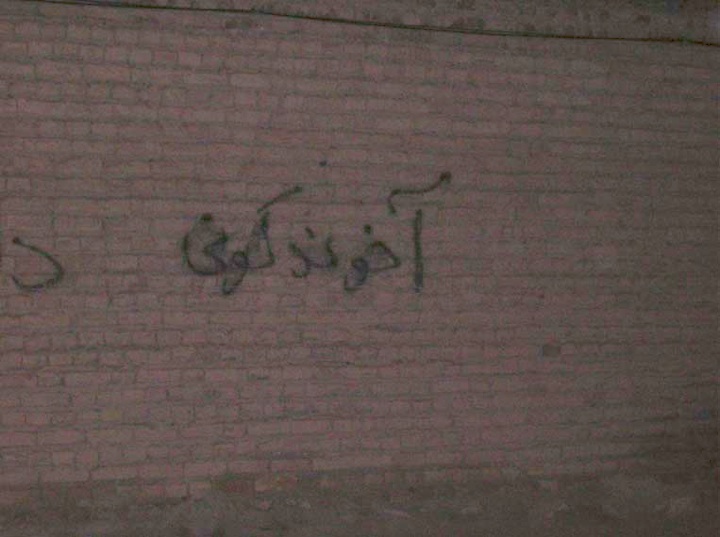 آخوند کونی د